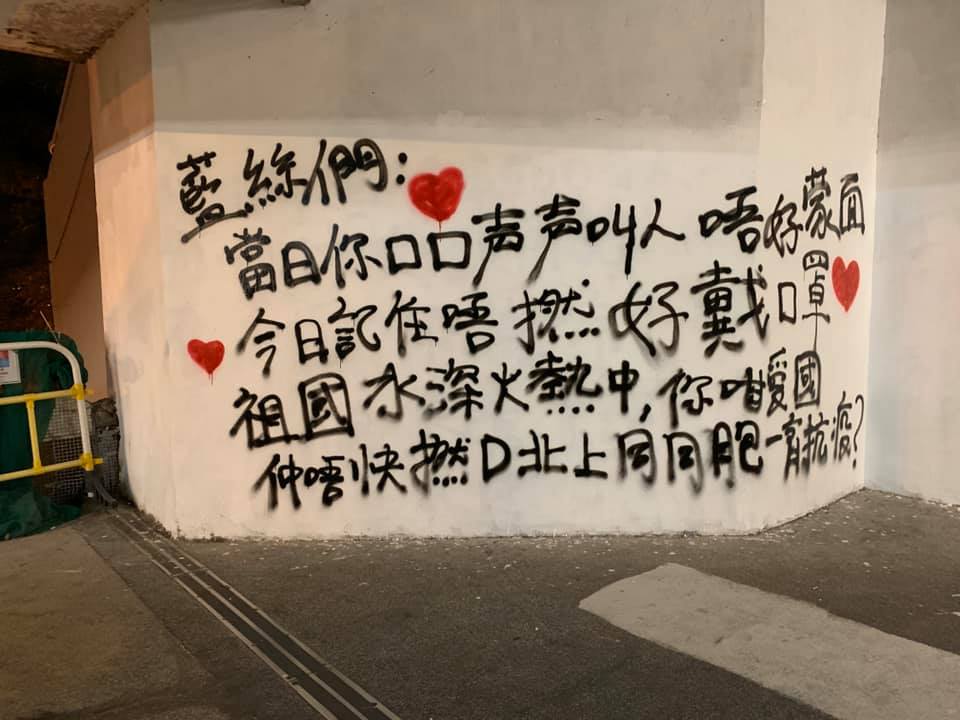 藍絲們：
當日你口口声声叫人唔好蒙面
今日記住唔撚好戴口罩
祖國水深火熱中,你咁愛國
仲唔快撚D北上同同胞一齊抗疫？